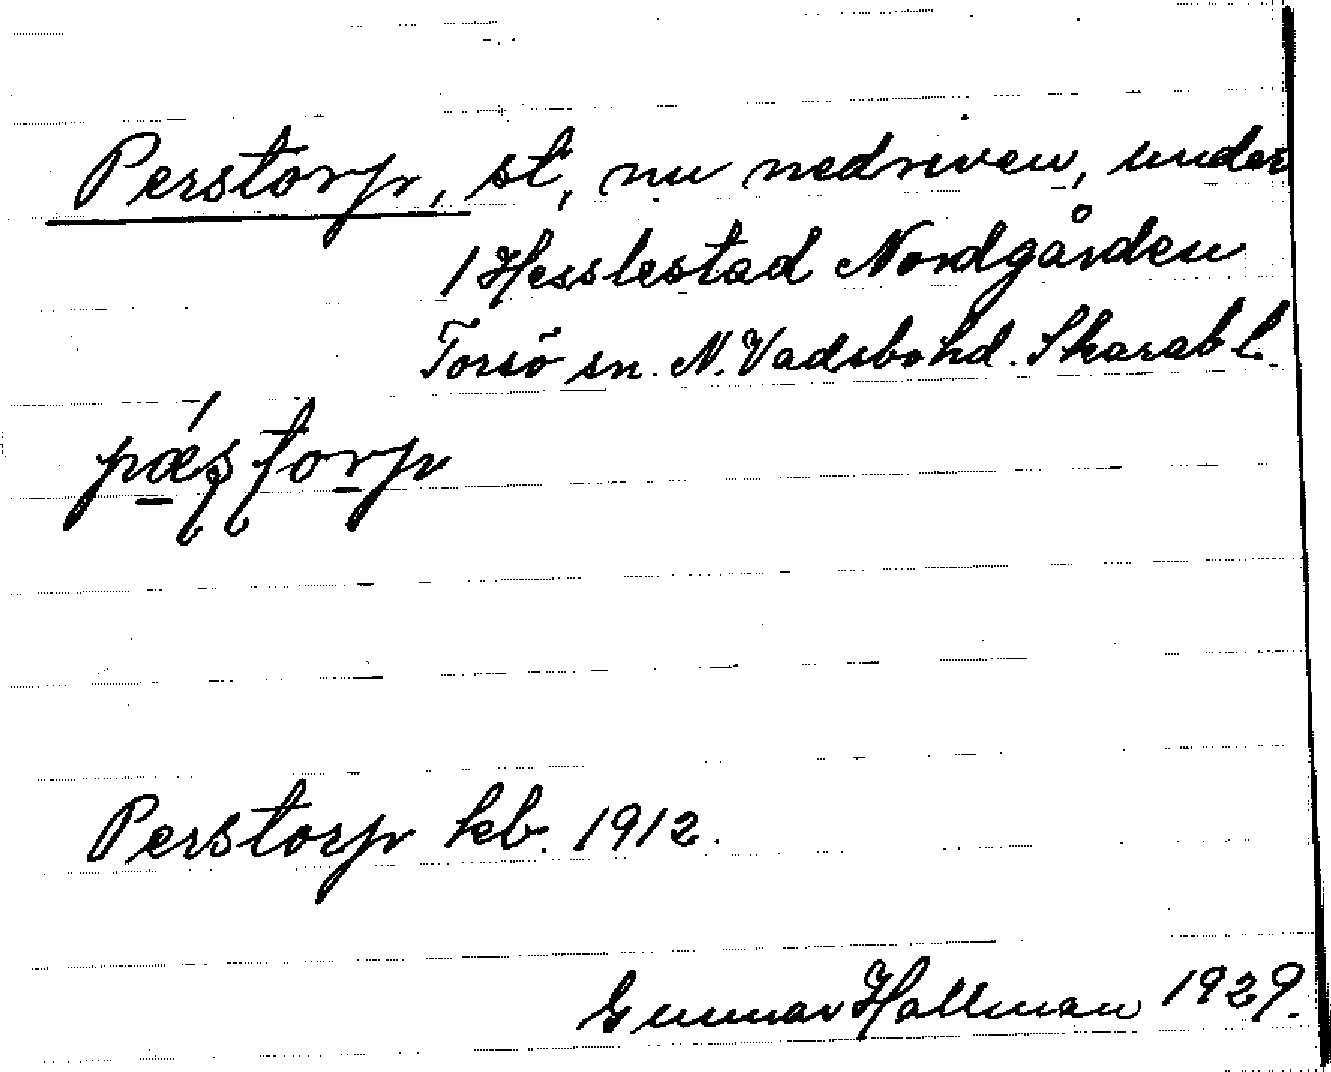 Perstorp, st, nu nedriven, under
1 Hesslestad Nordgården
Torsö sn. N. Vadsbo hd. Skarab l.
Perstorp kb. 1912.
Gunnar Hallman 1929.